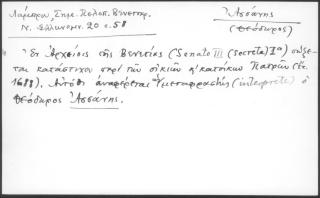 Λάμπρου, Σημ. Πελοπ. Βενετοκρ.
Ν. Ἑλληνομν. 20 σ. 58
Ἀσσάνης
(Θεόδωρος)
Ἐν Ἀρχείοις τῆς Βενετίας (Senato III (secreta) Iα) σώζε-
ται κατάστιχον περὶ τῶν οἰκιῶν κ' κατοίκων Πατρῶν (ἔτ.
1688). Αὐτόθι ἀναφέρεται μεταφραστὴς (interprete) ὁ
Θεόδωρος Ἀσσάνης.